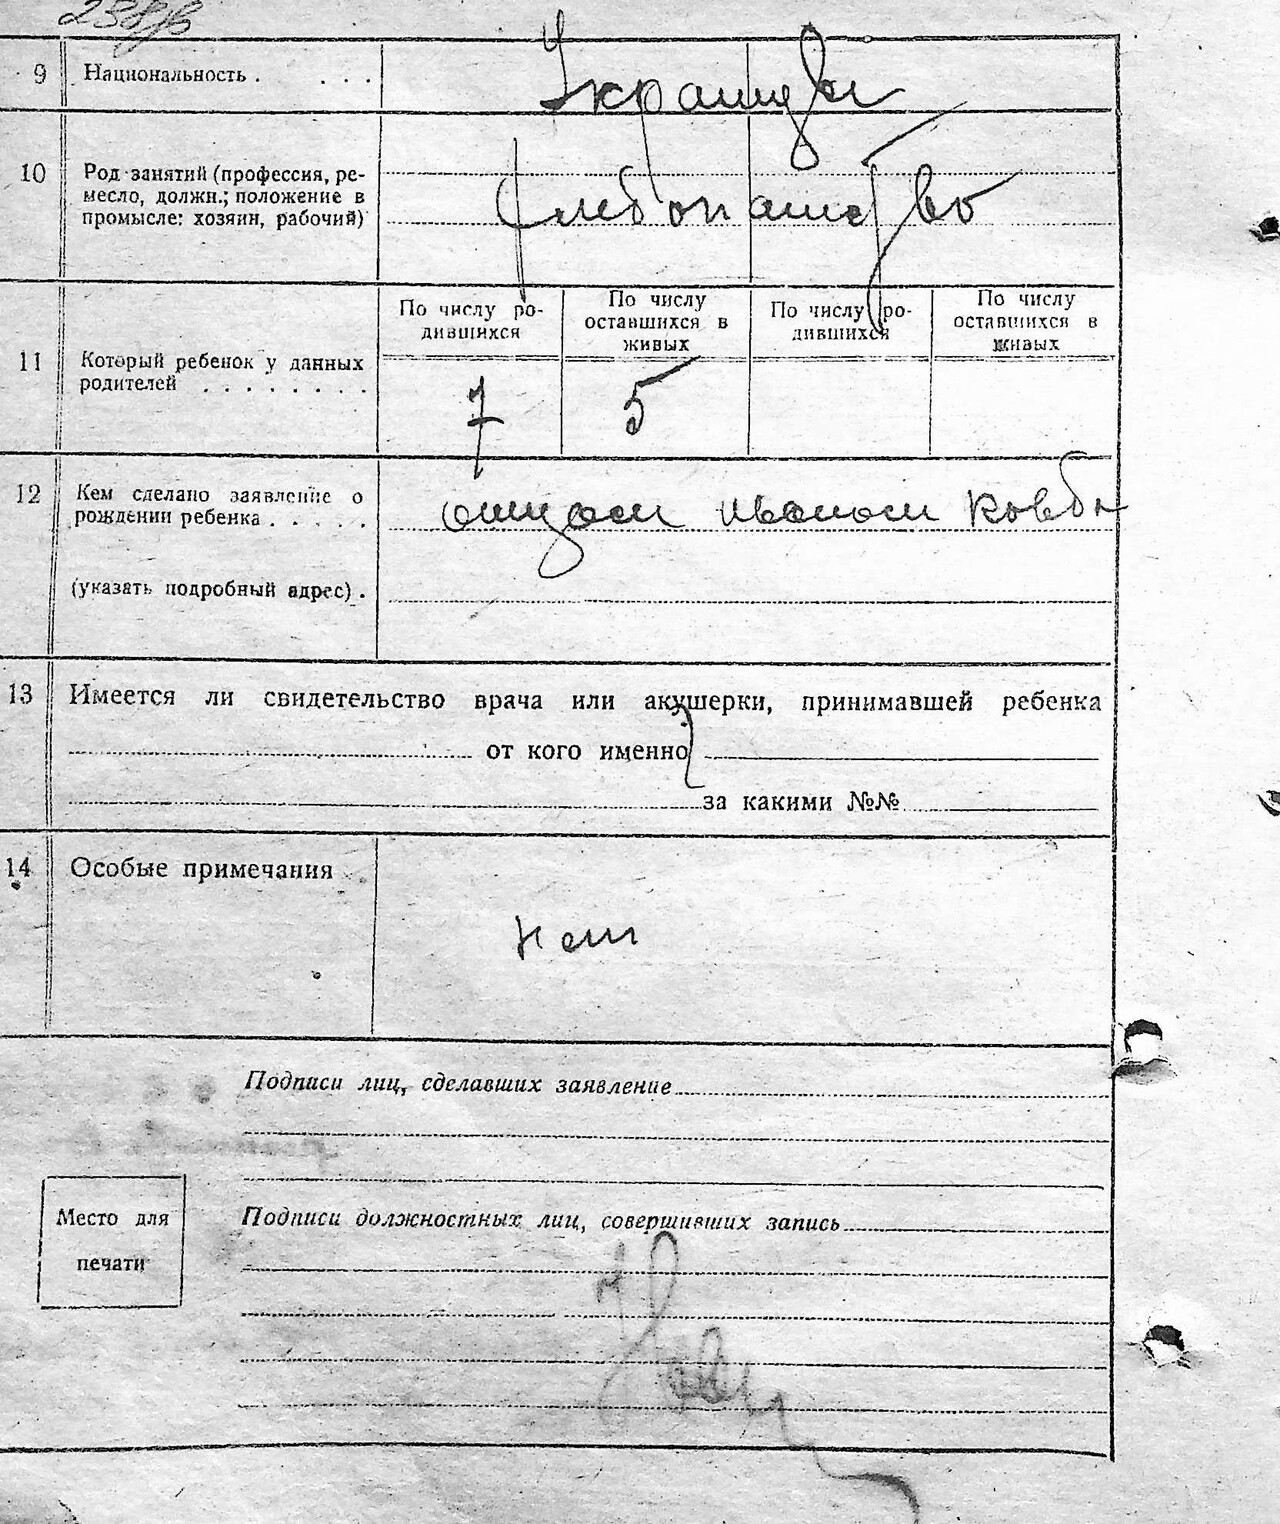 9 Национальность . . . . Украинцы
10 Род занятий (профессия, ре-
месло, должн.; положение в
промысле: хозяин, рабочий)
хлебопашество
По числу ро-
дившихся
По числу
оставшихся в
живых
По числу ро-
дившихся
По числу
оставшихся в
живых
11 Который ребенок у данных
родителей . . . . . . . .
7 5
12 Кем сделано заявление о
рождении ребенка . . . . .
отцом Иваном
(указать подробный адрес) .
13 Имеется ли свидетельство врача или акушерки, принимавшей ребенка
от кого именно
за какими №№
14 Особые примечания
нет
Подписи лиц, сделавших заявление
Место для
печати
Подписи должностных лиц, совершивших запись